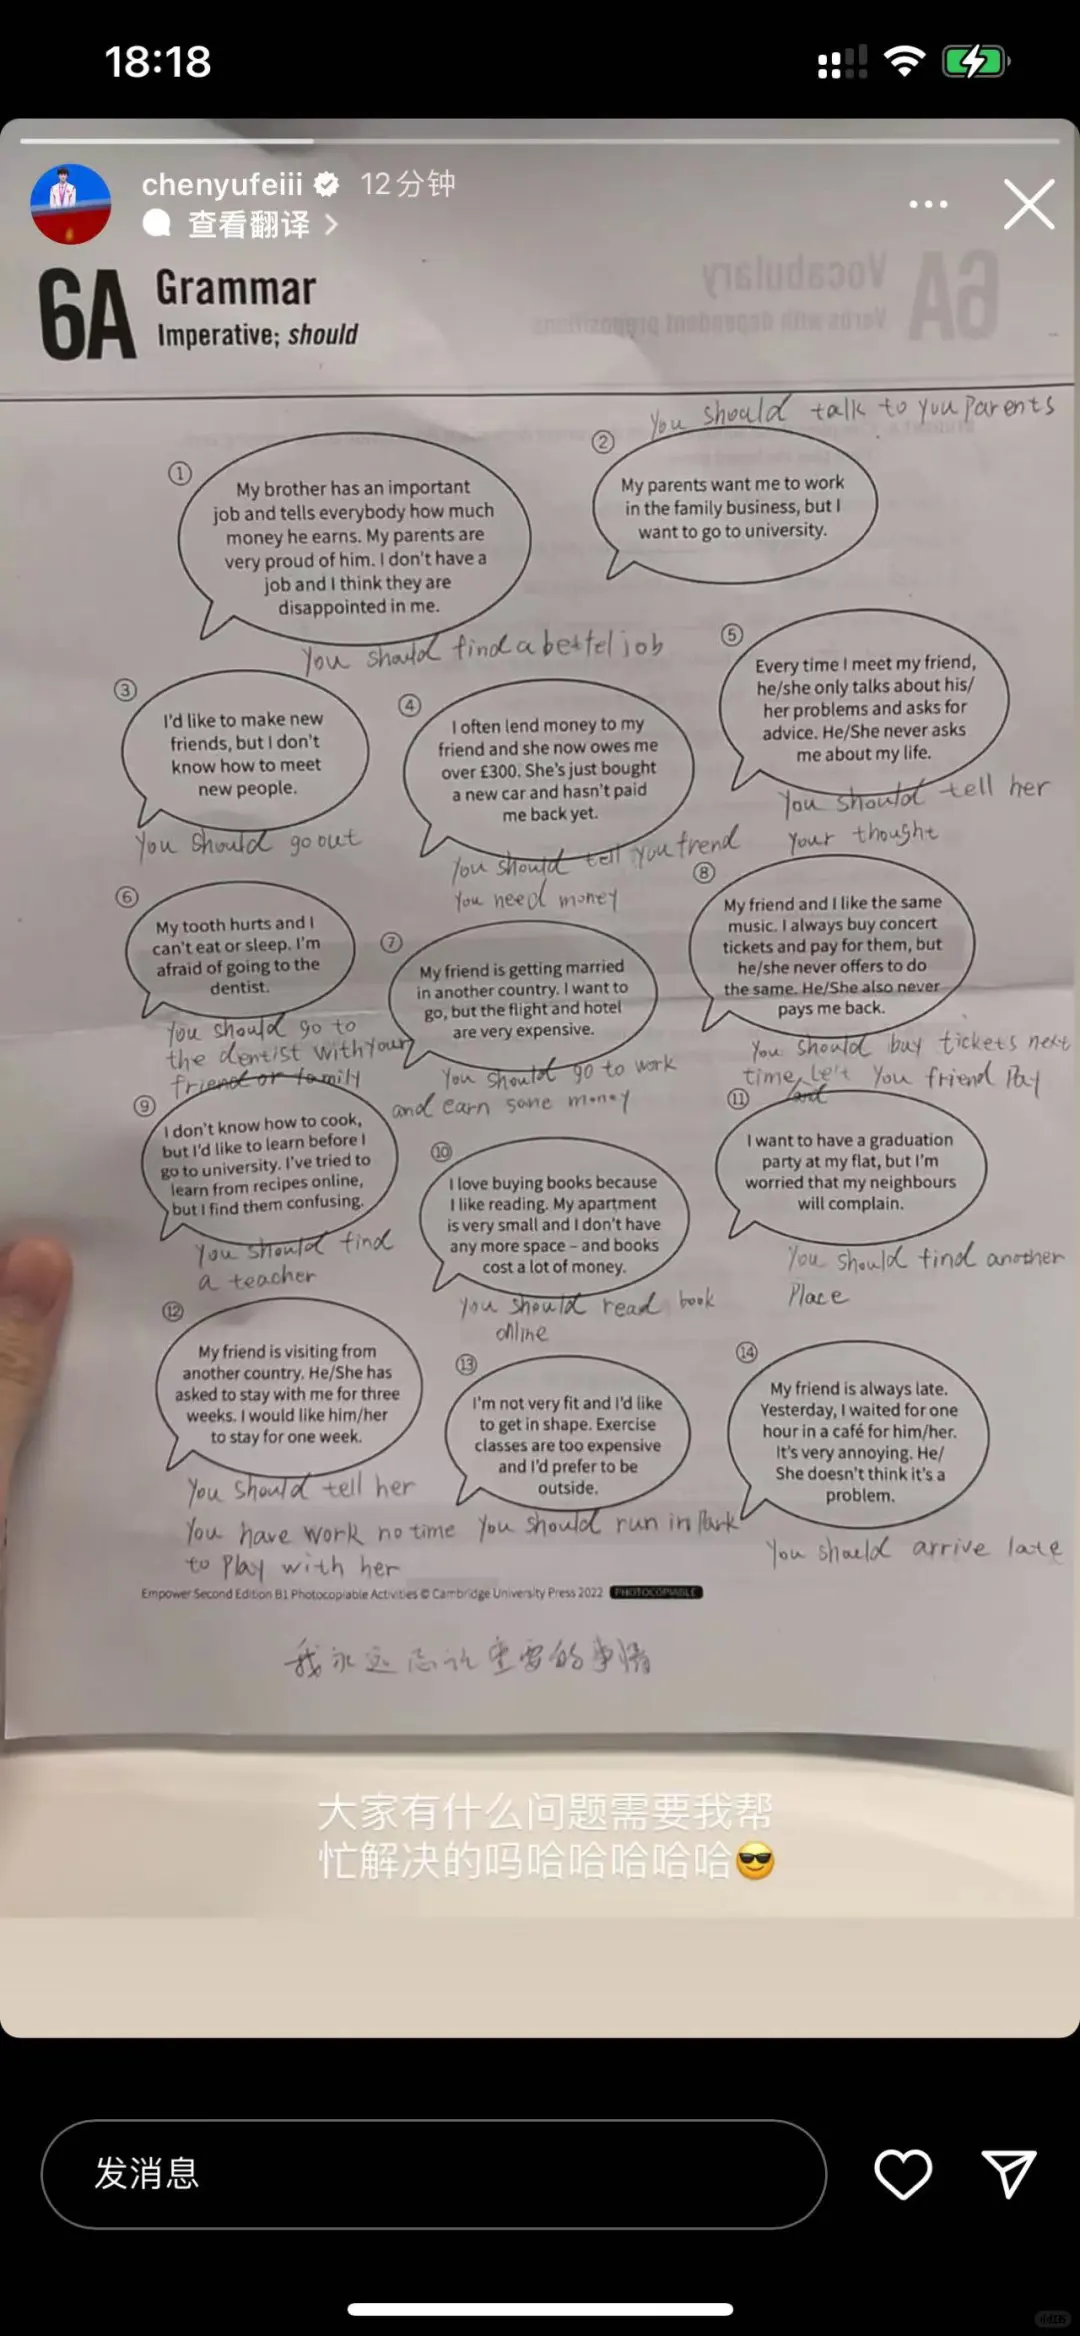 18:18
chenyufeiii 12分钟
查看翻译
6A Grammar
Imperative; should
6A Vocabulary
Verbs with dependent prepositions
You should talk to you parents
1
My brother has an important
job and tells everybody how much
money he earns. My parents are
very proud of him. I don't have a
job and I think they are
disappointed in me.
You should find a bettel job
2
My parents want me to work
in the family business, but I
want to go to university.
3
I'd like to make new
friends, but I don't
know how to meet
new people.
You should go out
4
I often lend money to my
friend and she now owes me
over £300. She's just bought
a new car and hasn't paid
me back yet.
You should tell you frend
You need money
5
Every time I meet my friend,
he/she only talks about his/
her problems and asks for
advice. He/She never asks
me about my life.
You should tell her
your thought
6
My tooth hurts and I
can't eat or sleep. I'm
afraid of going to the
dentist.
You should go to
the dentist with your
friend or family
7
My friend is getting married
in another country. I want to
go, but the flight and hotel
are very expensive.
You should go to work
and earn some money
8
My friend and I like the same
music. I always buy concert
tickets and pay for them, but
he/she never offers to do
the same. He/She also never
pays me back.
You should buy tickets next
time, let you friend pay
9
I don't know how to cook,
but I'd like to learn before I
go to university. I've tried to
learn from recipes online,
but I find them confusing.
You should find
a teacher
10
I love buying books because
I like reading. My apartment
is very small and I don't have
any more space – and books
cost a lot of money.
You should read book
online
11
I want to have a graduation
party at my flat, but I'm
worried that my neighbours
will complain.
You should find another
place
12
My friend is visiting from
another country. He/She has
asked to stay with me for three
weeks. I would like him/her
to stay for one week.
You should tell her
You have work no time
to play with her
13
I'm not very fit and I'd like
to get in shape. Exercise
classes are too expensive
and I'd prefer to be
outside.
You should run in Park
14
My friend is always late.
Yesterday, I waited for one
hour in a café for him/her.
It's very annoying. He/
She doesn't think it's a
problem.
You should arrive late
Empower Second Edition B1 Photocopiable Activities © Cambridge University Press 2022 PHOTOCOPIABLE
我永远忘记重要的事情
大家有什么问题需要我帮
忙解决的吗哈哈哈哈哈😎
发消息